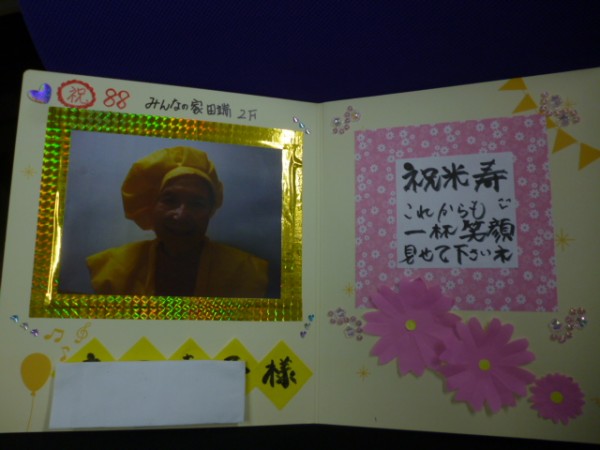 祝 88 みんなの家田端 2F
様
祝米寿
これからも
一杯笑顔
見せて下さいネ